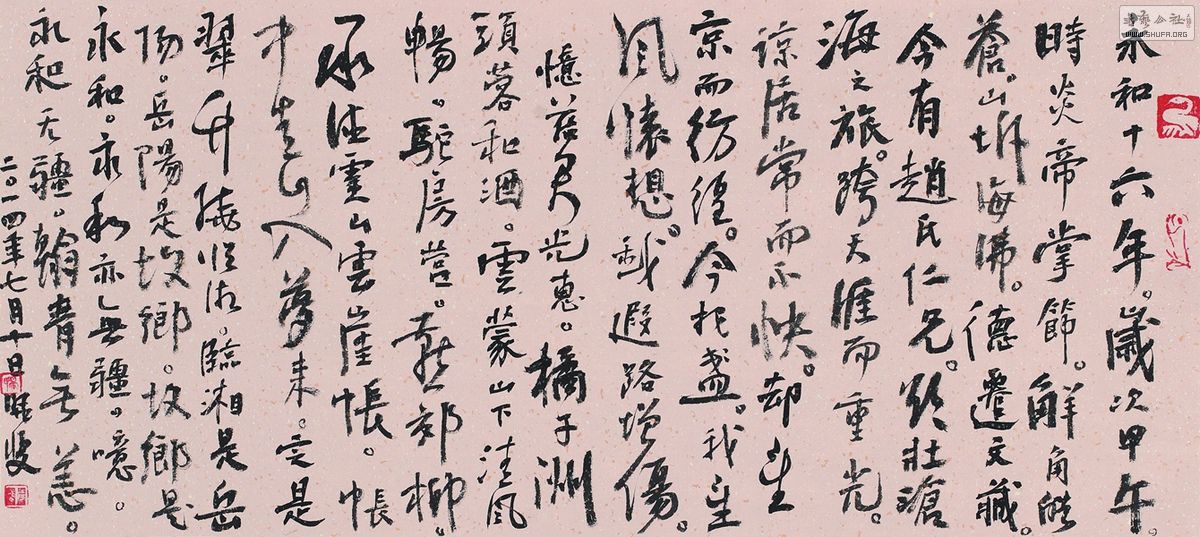 永和十六年。歲次甲午。
時炎帝掌節。解角皓
蒼。山崩海沸。德遷文藏。
今有趙氏仁兄。欲壯滄
海之旅。跨天涯而重光。
諒居常而不快。却
京而彷徨。今把盞。我
風懷想。越遐路增傷。
憶昔光惠。橘子洲
頭蓉和酒。雲蒙山下清風
暢。駝房營。郊柳。
承德雲山雲崖帳。帳
中人夢來。定是
翠升臨湘是岳
陽。岳陽是故鄉。故鄉是
永和。永和亦無疆。噫。
永和无疆。翰青無恙。
二〇一四年七月十日
书艺公社
WWW.SHUFA.ORG